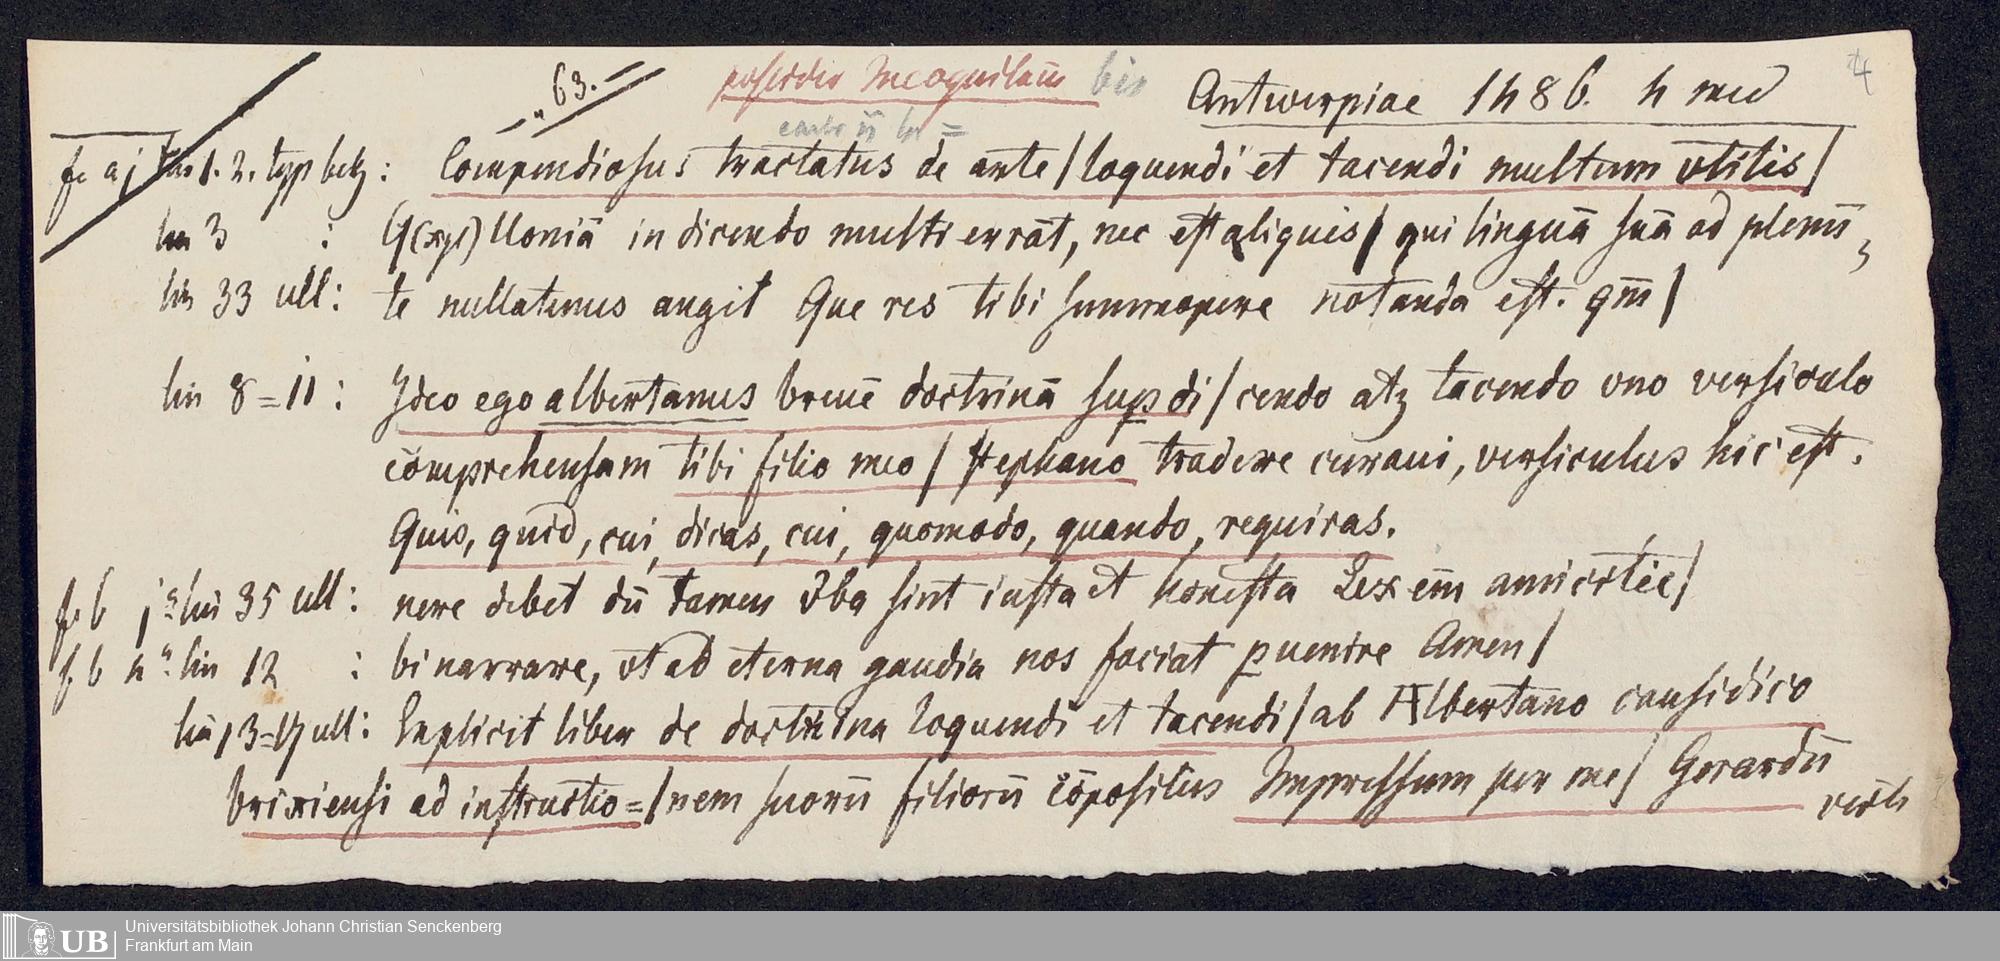 „ 63. =
bis
Antwerpiae 1486. 4 med
4
fe aj lin 1. 2. typ : Compendiosus tractatus de arte / loquendi et tacendi multum vtilis /
lin 3 : Q(xyl) Uoniā in dicendo multi errāt, nec est aliquis / qui linguā suā ad plenū
lin 33 ull : te nullatenus angit Que res tibi summopere notanda est. qm̄ /
lin 8 = 11 : Ideo ego albertanus breuē doctrinā sup di / cendo atz tacendo vno versiculo
comprehensam tibi filio meo / stephano tradere curaui, versiculus hic est.
Quis, quid, cui, dicas, cui, quomodo, quando, requiras.
fe b j a lin 35 ull : nere debet dū tamen vba sint iusta et honesta Lex em̄ amicitie /
f. b 4 a lin 12 : bi narrare, vt ad eterna gaudia nos faciat puenire Amen /
lin 13 = 17 ull : Explicit liber de doctrina loquendi et tacendi / ab Albertano causidico
brixiensi ad instructio = / nem suorū filiorū cōpositus Impressum per me / Gerardū
verte
Universitätsbibliothek Johann Christian Senckenberg
UB Frankfurt am Main